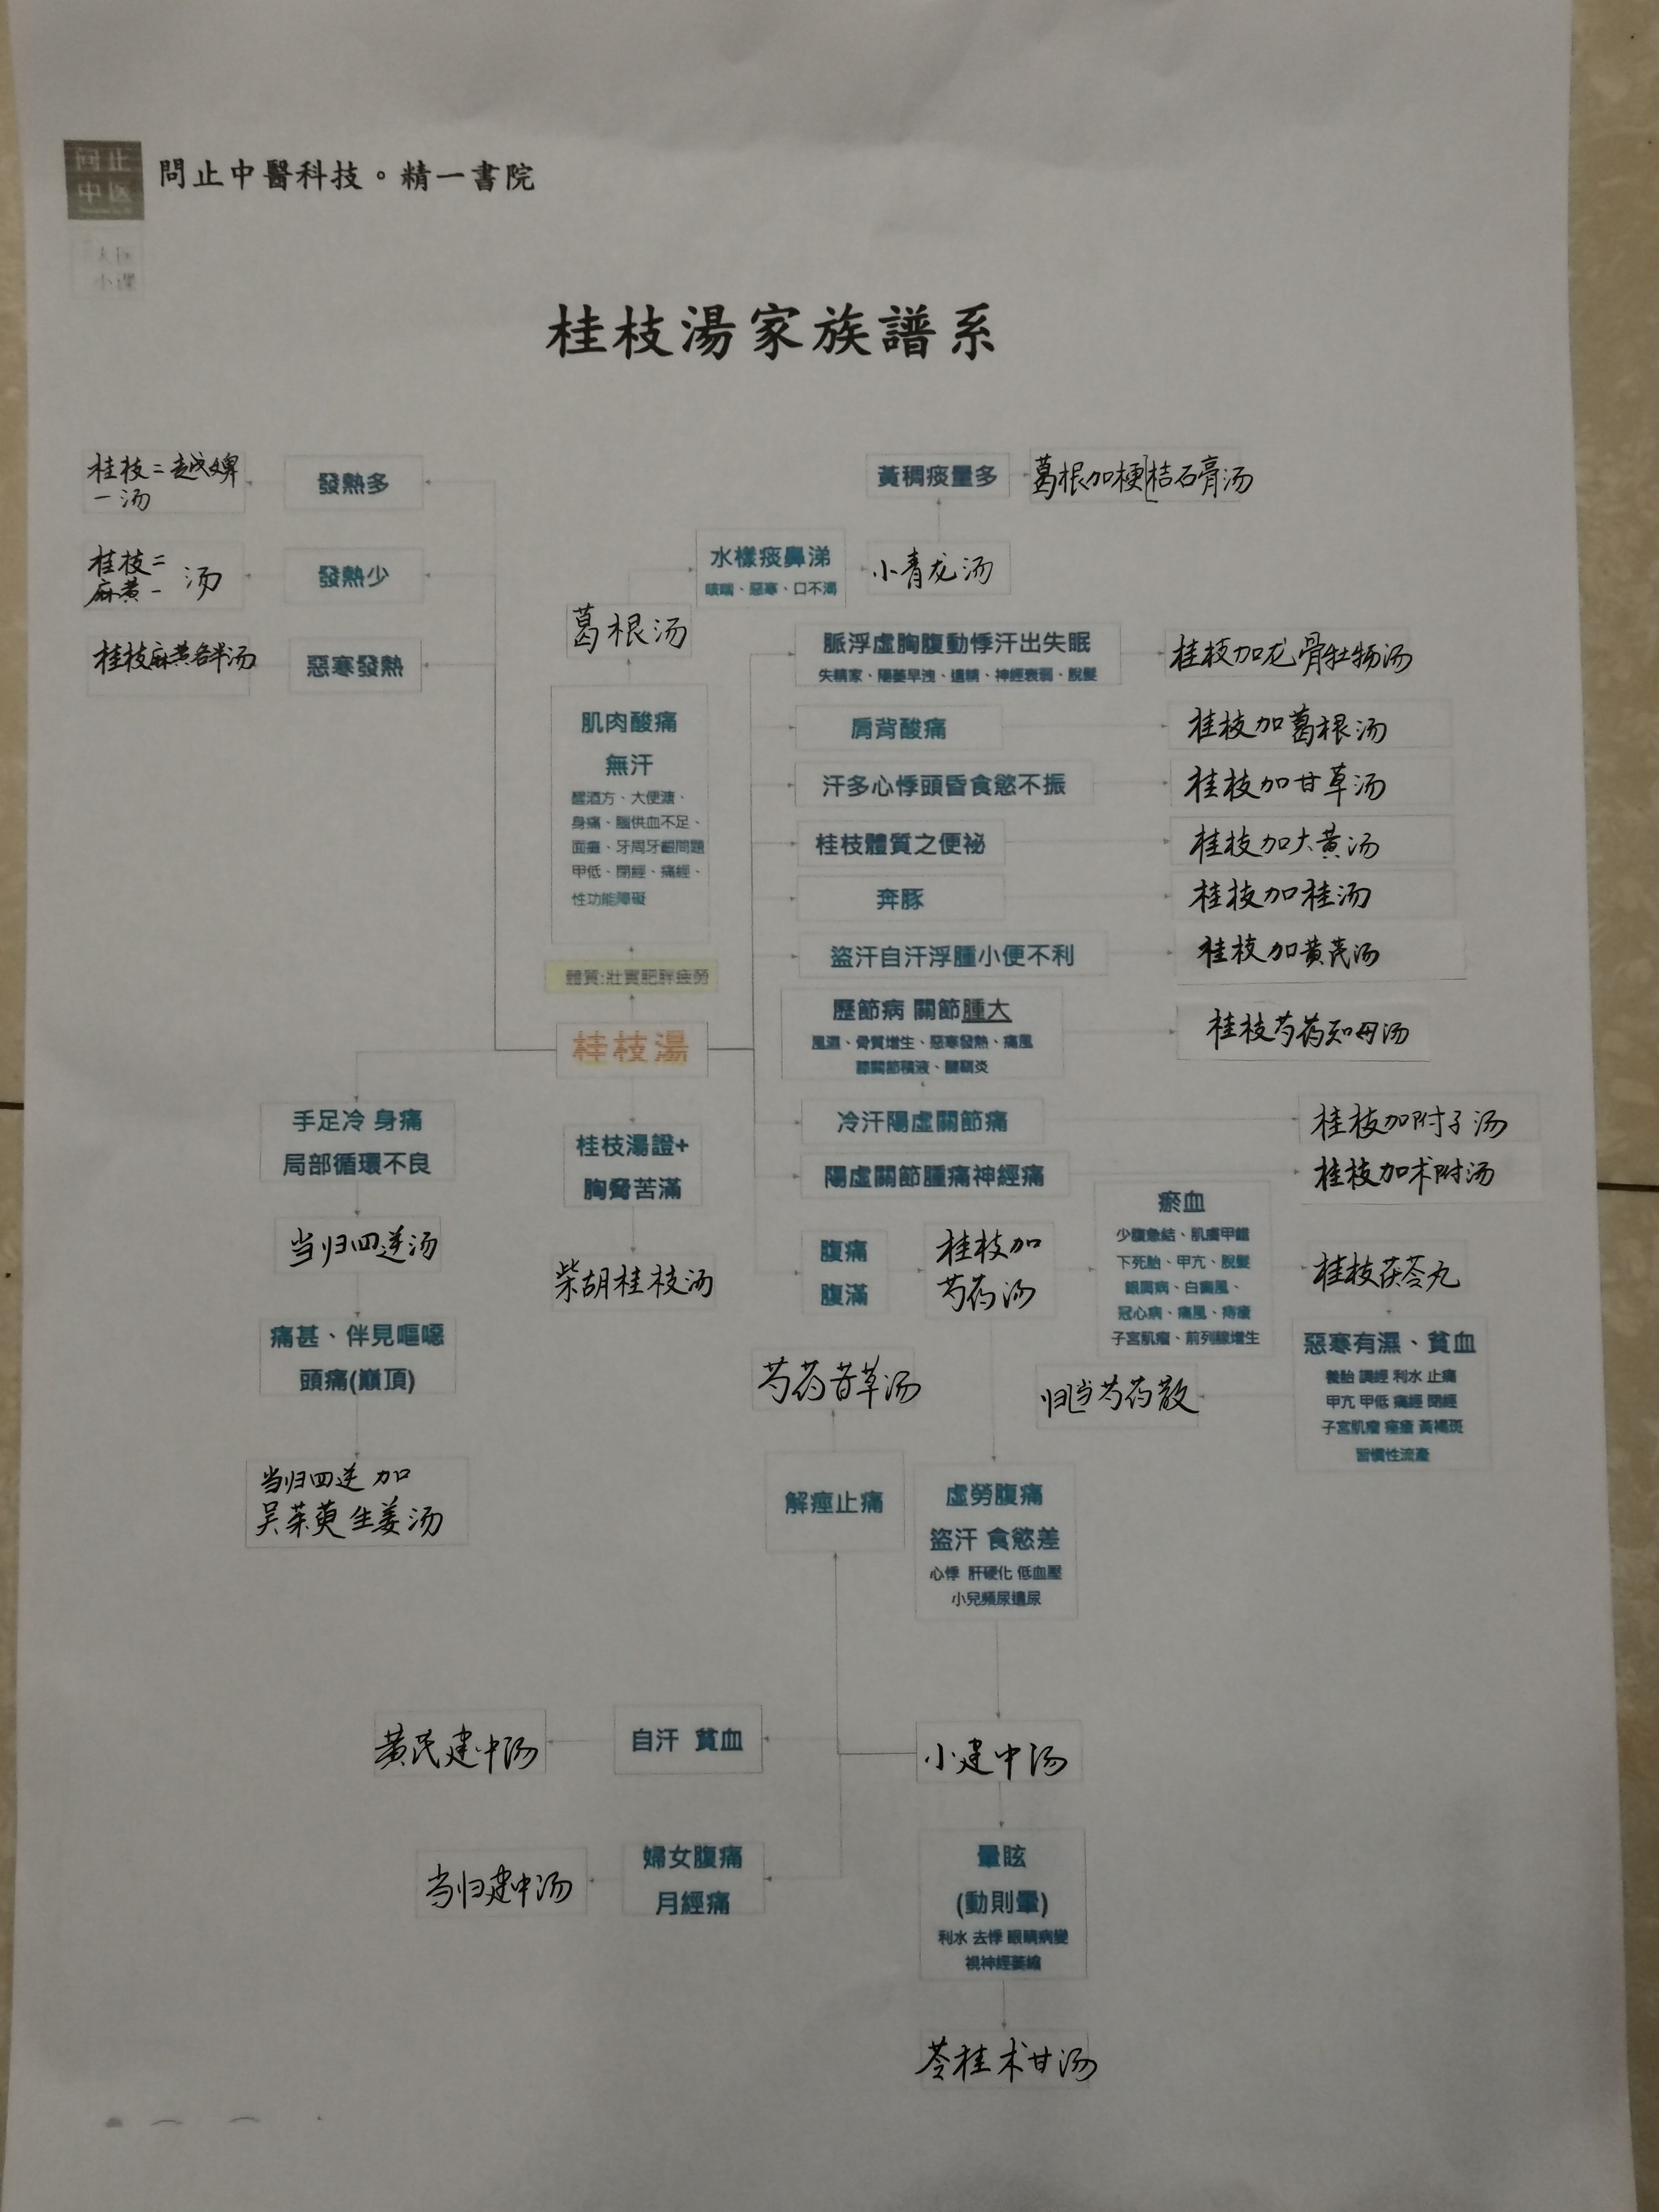 問止
中医
問止中醫科技。精一書院
小课
桂枝湯家族譜系
桂枝二越婢
一汤
發熱多
桂枝二
麻黄一 汤
發熱少
桂枝麻黄各半汤
惡寒發熱
黃稠痰量多
葛根加梗桔石膏汤
水樣痰鼻涕
咳喘、惡寒、口不渴
小青龙汤
葛根汤
肌肉酸痛
無汗
醒酒方、大便溏、
身痛、腦供血不足、
面癱、牙周牙齦問題
甲低、閉經、痛經、
性功能障礙
體質:壯實肥胖疲勞
桂枝湯
脈浮虛胸腹動悸汗出失眠
失精家、陽萎早洩、遺精、神經衰弱、脫髮
桂枝加龙骨牡蛎汤
肩背酸痛
桂枝加葛根汤
汗多心悸頭昏食慾不振
桂枝加甘草汤
桂枝體質之便祕
桂枝加大黄汤
奔豚
桂枝加桂汤
盜汗自汗浮腫小便不利
桂枝加黄芪汤
歷節病 關節腫大
風濕、骨質增生、惡寒發熱、痛風
膝關節積液、腱鞘炎
桂枝芍药知母汤
冷汗陽虛關節痛
桂枝加附子汤
陽虛關節腫痛神經痛
桂枝加术附汤
手足冷 身痛
局部循環不良
当归四逆汤
痛甚、伴見嘔噁
頭痛(巔頂)
当归四逆 加
吴茱萸生姜汤
桂枝湯證+
胸脅苦滿
柴胡桂枝汤
腹痛
腹滿
桂枝加
芍药汤
瘀血
少腹急結、肌膚甲錯
下死胎、甲亢、脫髮
銀屑病、白癜風、
冠心病、痛風、痔瘡
子宮肌瘤、前列腺增生
桂枝茯苓丸
惡寒有濕、貧血
養胎 調經 利水 止痛
甲亢 甲低 痛經 閉經
子宮肌瘤 痤瘡 黃褐斑
習慣性流產
归当芍药散
芍药甘草汤
解痙止痛
虛勞腹痛
盜汗 食慾差
心悸 肝硬化 低血壓
小兒頻尿遺尿
小建中汤
自汗 貧血
黄芪建中汤
婦女腹痛
月經痛
当归建中汤
暈眩
(動則暈)
利水 去悸 眼睛病變
視神經萎縮
苓桂术甘汤